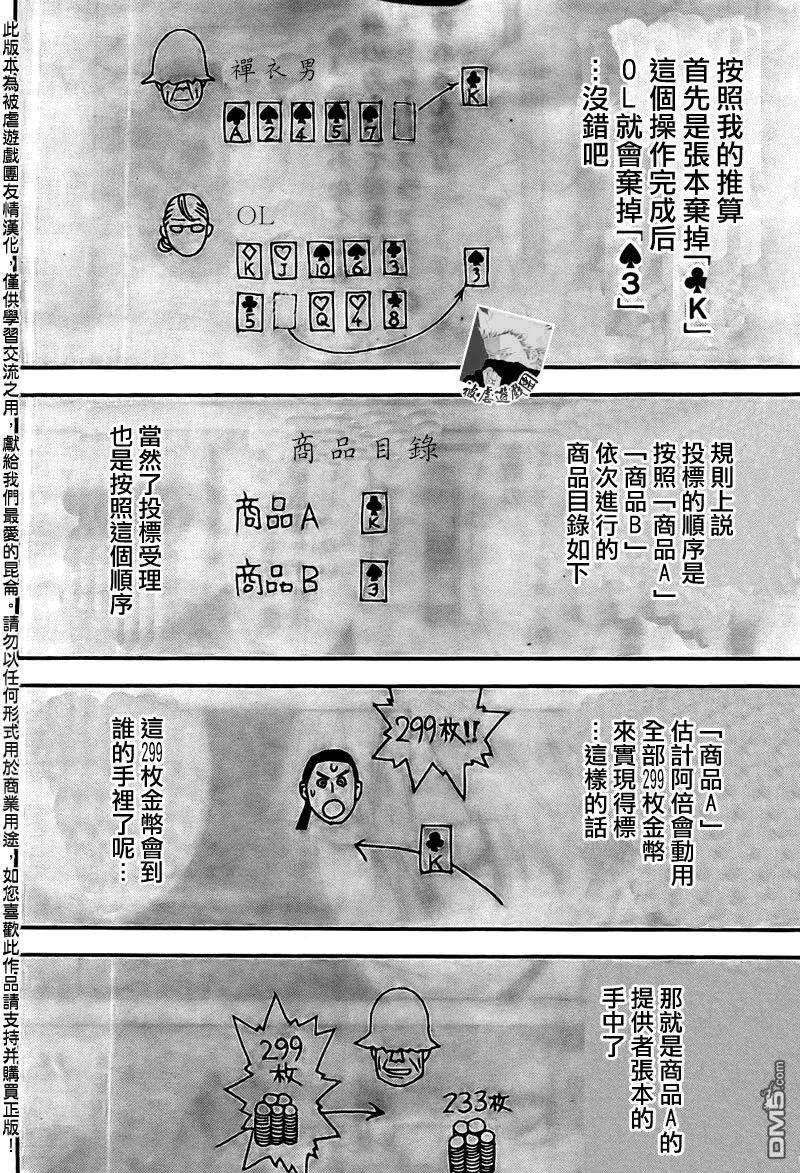 按照我的推算
首先是張本棄掉「♣K」
這個操作完成后
OL就會棄掉「♠3」
…沒錯吧
禪衣男
A 2 4 5 7
K
OL
K J 10 6 3
5 Q 4 8
3
被虐遊戲團
規則上說
投標的順序是
按照「商品A」
「商品B」
依次進行的
商品目錄如下
商品目錄
商品A K
商品B 3
當然了投標受理
也是按照這個順序
「商品A」
估計阿倍會動用
全部299枚金幣
來實現得標
…這樣的話
299枚!!
K
這299枚金幣會到
誰的手裡了呢…
那就是商品A的
提供者張本的
手中了
299
枚
233枚
DM5.com
此版本為被虐遊戲團友情漢化，僅供學習交流之用，獻給我們最愛的昆侖。請勿以任何形式用於商業用途，如您喜歡此作品請支持并購買正版！